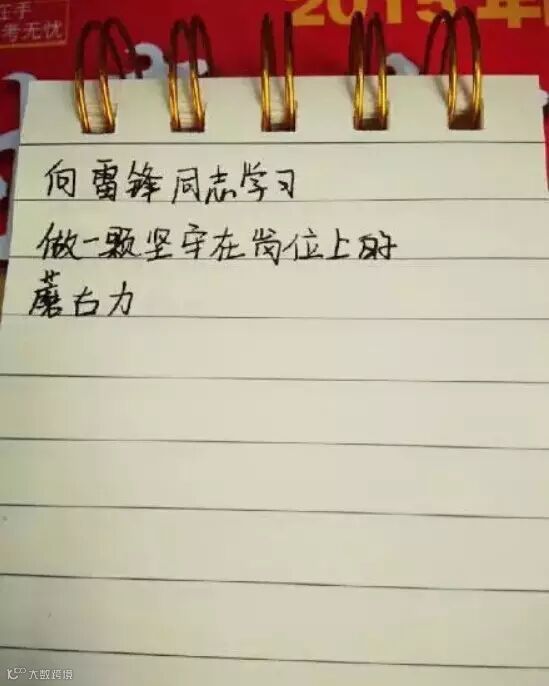 在手
考无忧
2015年
向雷锋同志学习
做一颗坚守在岗位上的
蘑右力
大数跨境